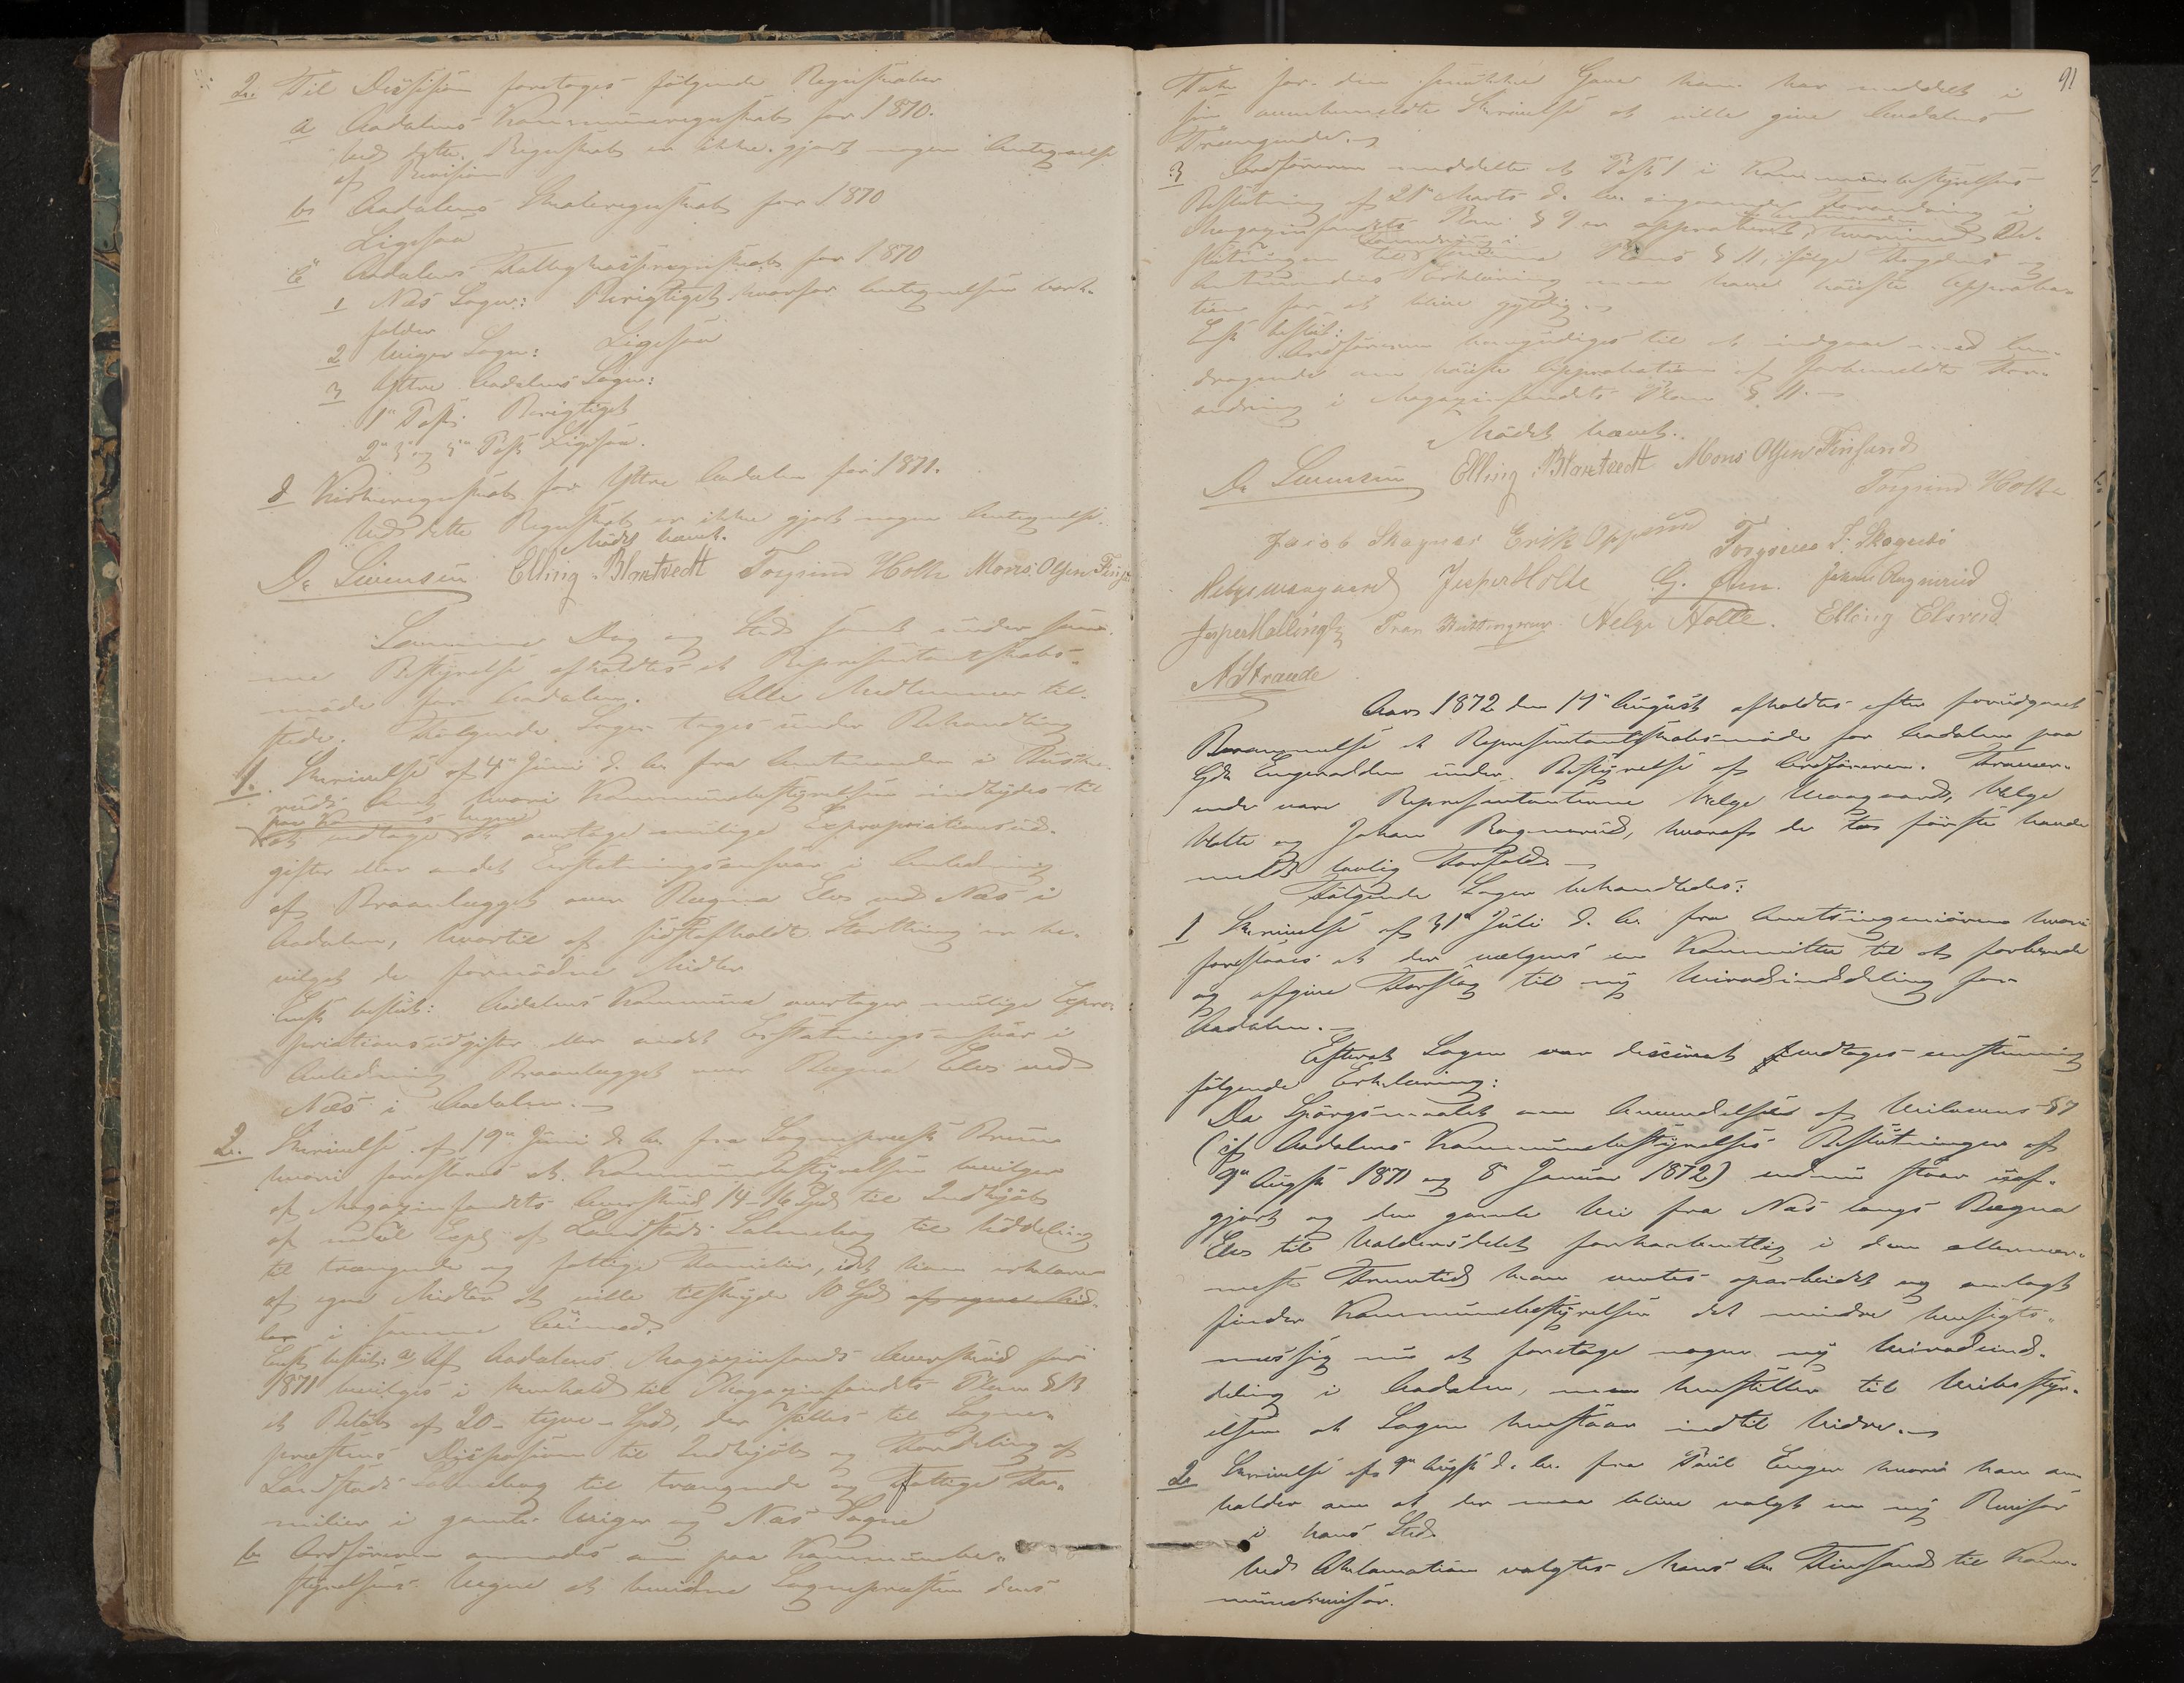 2. Til Decision foretoges følgende Regnskaber
a Aadalens Kommuneregnskab for 1870.
Ved dette Regnskab er ikke gjort nogen Antegnelse
af Revision
b Aadalens Skoleregnskab for 1870
Ligesaa
c Aadalens Fattigkasseregnskab for 1870
1 Næs Sogn: Berigtiget, hvorfor Antegnelsen bort-
falder
2 Viger Sogn: Ligesaa
3 Ytre Aadalens Sogn:
1ste Post. Berigtiget
2den 3die og Post Ligesaa.
d Kirkeregnskab for Ytre Aadalen for 1871.
Ved dette Regnskab er ikke gjort nogen Antegnelse.
Mødet hævet.
Dr Sørensen Elling Blaktvedt Torgrim Holte Mons Olsen Finsand
Samme Dag og Sted samt under sam-
me Bestyrelse afholdtes et Repræsentantskabs-
møde for Aadalen. Alle Medlemmer til-
stede. Følgende Sager toges under Behandling
1. Skrivelse af 4de Juni d. A. fra Amtmanden i Buske-
ruds Amt hvori Kommunebestyrelsen indbydes til
paa Kommunens Vegne
at overtage mulige Expropriationsud-
gifter eller andet Erstatningsansvar i Anledning
af Broanlægget over Bægna Elv ved Næs i
Aadalen, hvortil af sidstafholdt Storthing er be-
vilget de fornødne Midler
Enst. besluttet: Aadalens Kommune overtager mulige Expro-
priationsudgifter eller andet Erstatningsansvar i
Anledning Broanlægget over Bægna Elv ved
Næs i Aadalen.
2. Skrivelse af 19de Juni d. A. fra Sognepræst Bruun
hvori foreslaaes at Kommunebestyrelsen bevilger
af Magazinfondets Overskud 14-16 Spd til Indkjøb
af Expl. af Landstads Salmebog til Uddeling
til trængende og fattige Familier, idet han erklærer
af egne Midler at ville tilskyde 10 Spd af egne Mid-
ler i samme Øiemed.
Enst. besluttet: a, Af Aadalens Magazinfonds Overskud for
1871 bevilges i Henhold til Magazinfondets Plan § 13
et Beløb af 20 - tyve - Spd, der stilles til Sogne-
præstens Disposition til Indkjøb og Fordeling af
Landstads Salmebog til trængende og fattige Fa-
milier i gamle Viger og Næs Sogne
b Ordføreren anmodes om paa Kommunebe-
styrelsens Vegne at bevidne Sognepræsten dens
91
Tak for den smukke Gave han har meddelt i
sin ovenbemeldte Skrivelse at ville give Aadalens
Trængende.
3 Ordføreren meddelte at Post 1 i Kommunebestyrelsens
Beslutning af 21de Marts d. A. angaaende Forandring i
Magazinfondets Plan § 9 er approberet af Amtmanden hvorimod Be-
slutningen til Forandring i samme Plans § 11, ifølge Fogdens og
Amtmandens Erklæring maa have høieste Approba-
tion for at blive gyldig.
Enst. besluttet:
Ordføreren bemyndiges til at indgaae med An-
dragende om høieste Approbation af forbemeldte For-
andring i Magazinfondets Plan § 11.
Mødet hævet.
Dr Sørensen Elling Blaktvedt Mons Olsen Finsand
Torgrim Holte
Jacob Skagnæs Erik Oppesud Torgrim T. Skagnæs
Helge Waagaard Jesper Holte G. Johan Ragnerud
Jesper Hallingby Helge Holte. Elling Elsrud
A Strande
Aar 1872 den 17de August afholdtes efter forudgaaet
Berammelse et Repræsentantskabsmøde for Aadalen paa
Gdn Engerodden under Bestyrelse af Ordføreren. Fravær-
ende vare Repræsentanterne Helge Waagaard, Helge
Holte og Johan Ragnerud, hvoraf de to første havde
meldt lovlig Forfald.
Følgende Sager behandledes:
1 Skrivelse af 31te Juli d. A. fra Amtsingeniøren hvori
foreslaaes at der vælges en Kommitte til at forberede
og afgive Forslag til ny Veirodeinddeling for
Aadalen.
Efterat Sagen var discuteret fandtages enstemmig
følgende Erklæring:
Da Spørgsmaalet om Anvendelsen af Veilovens § 7
(cf. Aadalens Kommunebestyrelses Beslutninger af
9de Augst 1871 og 8 Januar 1872) endnu staar uaf-
gjort og den gamle Vei fra Næs langs Bægna
Elv til Valdersdelet forhaabentlig i den allernær-
meste Fremtid kan ventes oparbeidet og omlagt
finder Kommunebestyrelsen det mindre hensigts-
mæssig nu at foretage nogen ny Veirodeind-
deling i Aadalen, men henstiller til Veibestyr-
elsen at Sagen henstaar indtil videre.
2. Skrivelse af 9de Augst d. A. fra Paul Enger hvori han an-
holder om at der maa blive valgt en ny Revisor
i hans Sted.
Ved Aklamation valgtes Mons O. Finsand til Kom-
munerevisor.